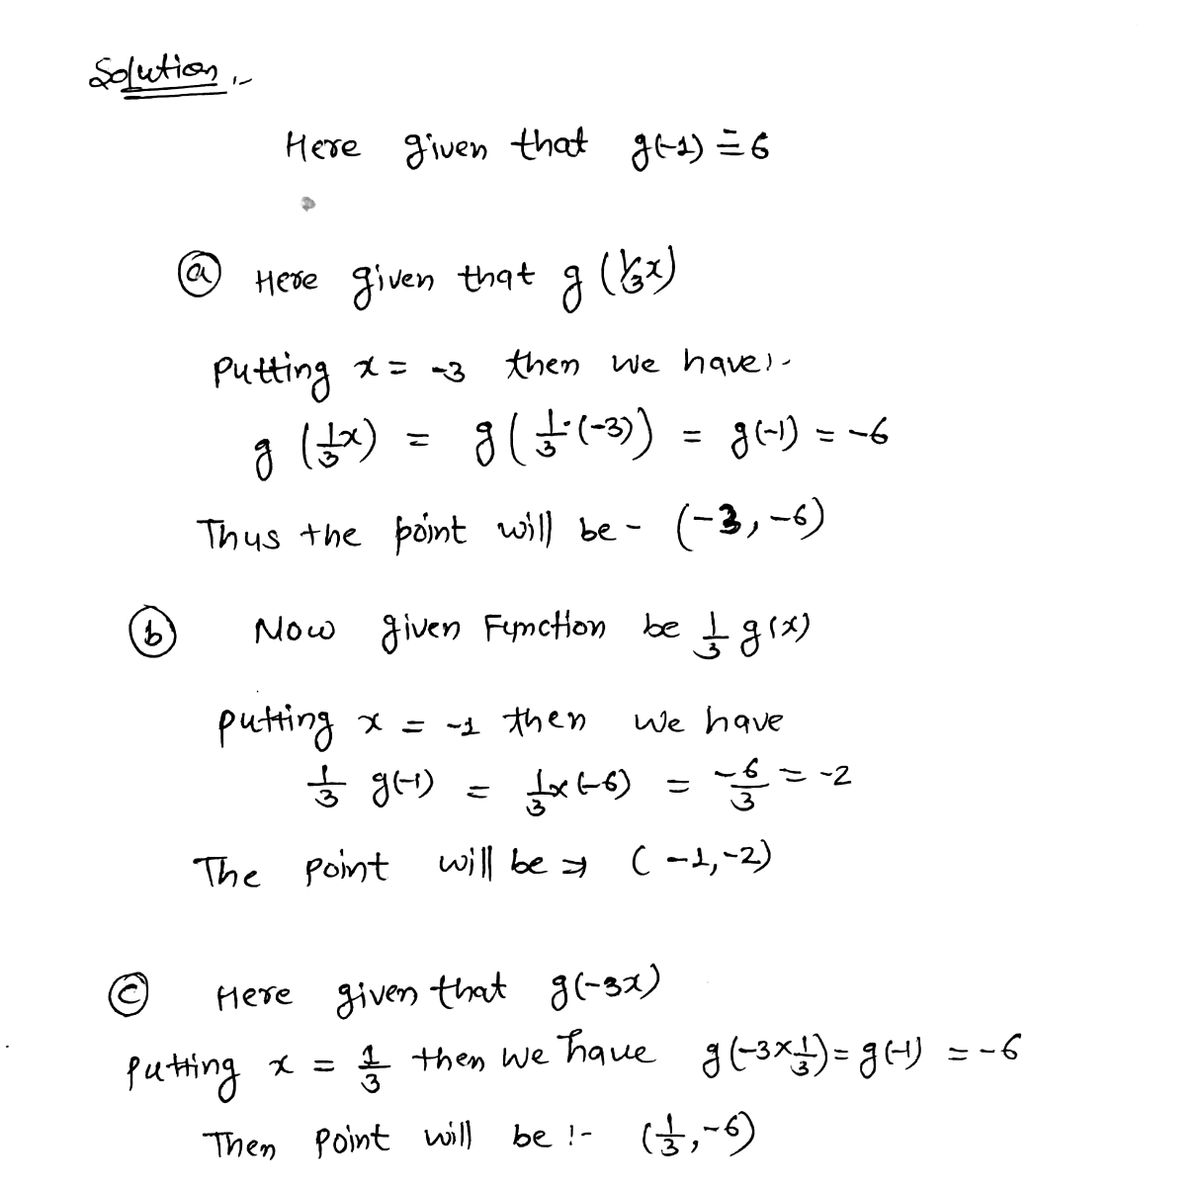 Solution :-
Here given that g(-1) = -6
(a) Here given that g (1/3x)
Putting x = -3 then we have :-
g (1/3 x) = g ( 1/3 · (-3)) = g(-1) = -6
Thus the point will be - (-3, -6)
(b) Now given Function be 1/3 g(x)
putting x = -1 then we have
1/3 g(-1) = 1/3 x (-6) = -6/3 = -2
The point will be ⇒ ( -1, -2)
(c) Here given that g(-3x)
Putting x = 1/3 then we have g(-3×1/3) = g(-1) = -6
Then point will be :- (1/3, -6)